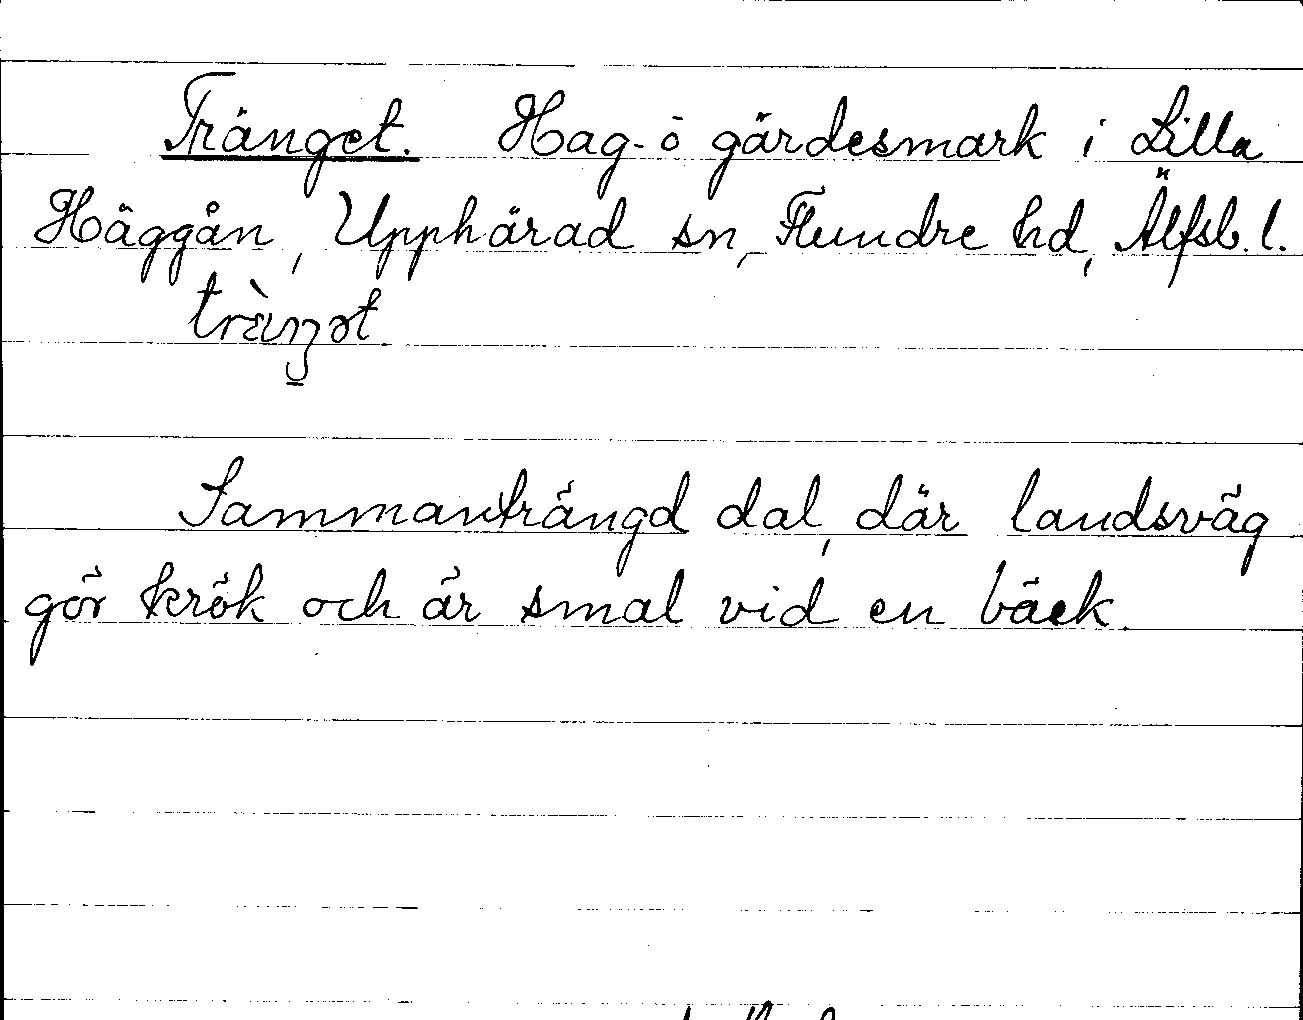 Tränget. Hag- o gärdesmark i Lilla
Häggån, Upphärad sn, Flundre hd, Älfsb. l.
Sammanträngd dal, där landsväg
gör krök och är smal vid en bäck.